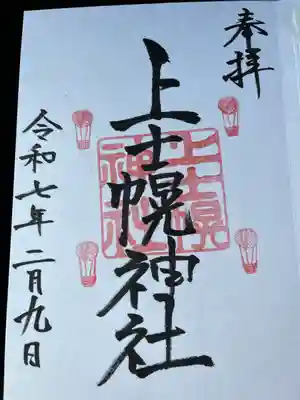 奉拝
上士幌神社
上士幌神社
令和七年二月九日